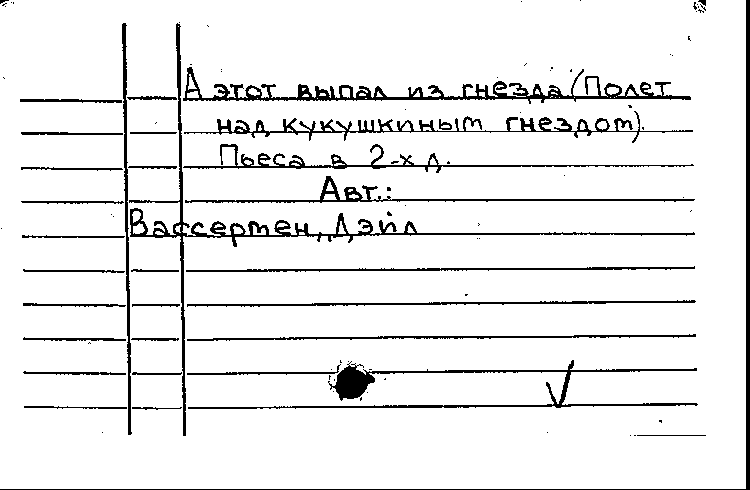 А этот выпал из гнезда (Полет
над кукушкиным гнездом).
Пьеса в 2-х д.
Авт.:
Вассермен, Дэйл